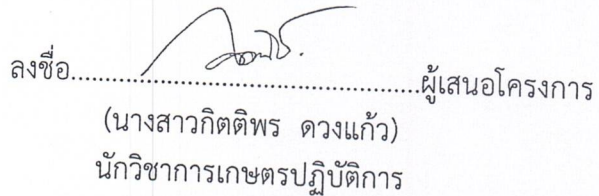 ลงชื่อ..................................................ผู้เสนอโครงการ
(นางสาวกิตติพร ดวงแก้ว)
นักวิชาการเกษตรปฏิบัติการ